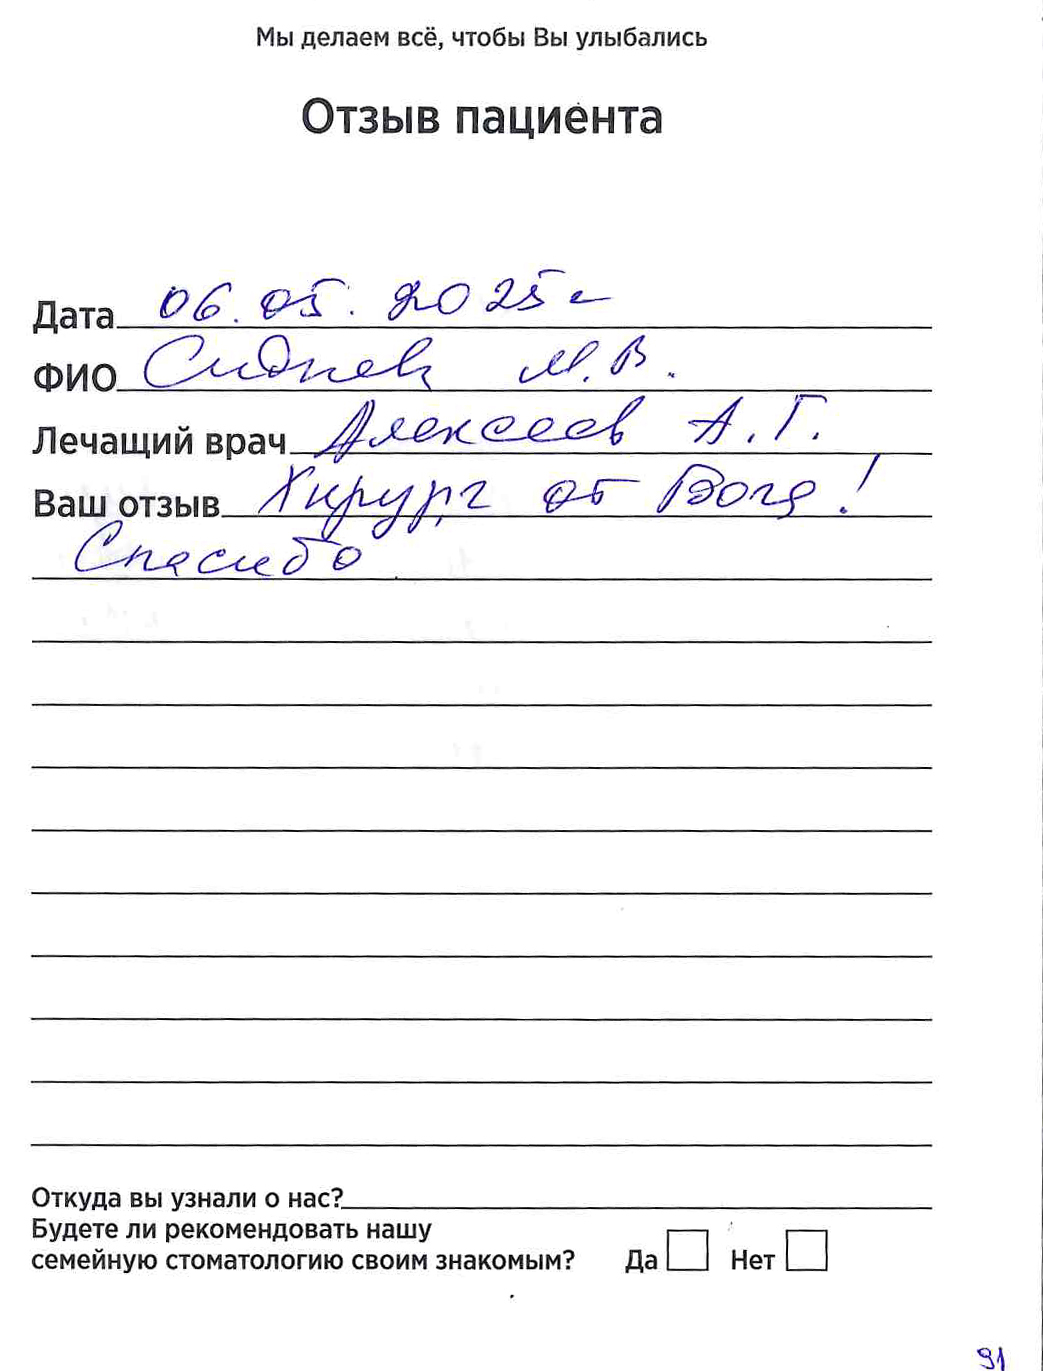 Мы делаем всё, чтобы Вы улыбались
Отзыв пациента
Дата 06.05.2025г
ФИО Сиднев М.В.
Лечащий врач Алексеев А.Г.
Ваш отзыв Хирург от Бога!
Спасибо
Откуда вы узнали о нас?
Будете ли рекомендовать нашу
семейную стоматологию своим знакомым? Да Нет
91